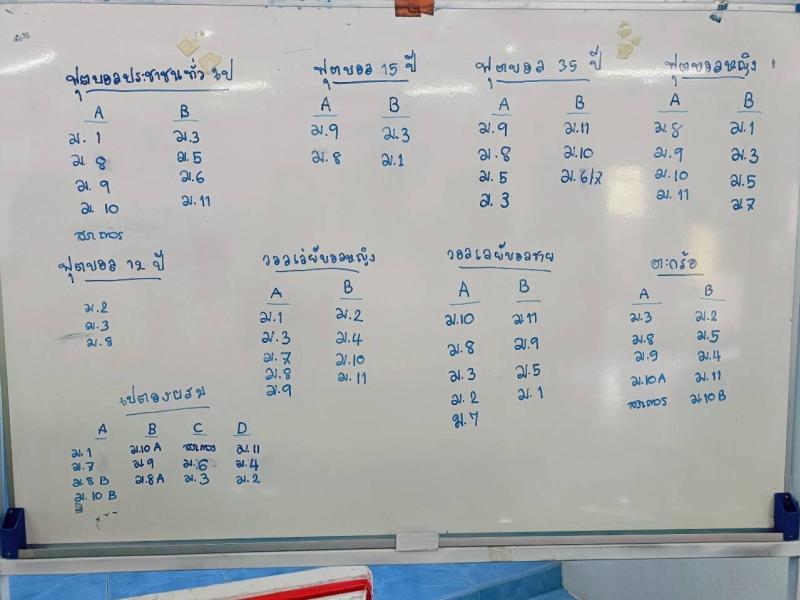 ฟุตบอลประชาชนทั่วไป
A B
ม. 1 ม.3
ม 8 ม.5
ม. 9 ม.6
ม. 10 ม.11
ฟุตบอล 15 ปี
A B
ม.9 ม.3
ม.8 ม.1
ฟุตบอล 35 ปี
A B
ม.9 ม.11
ม.8 ม.10
ม.5 ม.6/7
ม. 3
ฟุตบอลหญิง
A B
ม.8 ม.1
ม.9 ม.3
ม.10 ม.5
ม.11 ม.7
ฟุตบอล 12 ปี
ม.2
ม.3
ม.8
วอลเล่ย์บอลหญิง
A B
ม.1 ม.2
ม.3 ม.4
ม.7 ม.10
ม.8 ม.11
ม.9
วอลเลย์บอลชาย
A B
ม.10 ม.11
ม.8 ม.9
ม.3 ม.5
ม.2 ม.1
ม.7
ตะกร้อ
A B
ม.3 ม.2
ม.8 ม.5
ม.9 ม.4
ม.10A ม.11
ม.10B
เปตองผสม
A B C D
ม.1 ม.10A ม.11
ม.7 ม.9 ม.6 ม.4
ม.8 B ม.8A ม.3 ม.2
ม.10 B